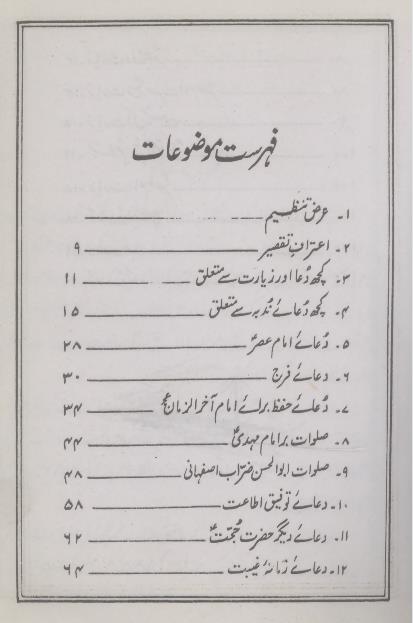 فہرست موضوعات
۱۔ عرض تنظیم
۲۔ اعترافِ تقصیر ۹
۳۔ کچھ دُعا اور زیارت سے متعلق ۱۱
۴۔ کچھ دُعائے نُدبہ سے متعلق ۱۵
۵۔ دُعائے امام عصرؑ ۲۸
۶۔ دعائے فرج ۳۰
۷۔ دُعائے حفظ برائے امام آخر الزمانؑ ۳۴
۸۔ صلوات بر امام مہدیؑ ۴۴
۹۔ صلوات ابوالحسن ضرّاب اصفہانی ۴۸
۱۰۔ دعائے توفیق اطاعت ۵۸
۱۱۔ دعائے دیگر حضرت حُجّتؑ ۶۲
۱۲۔ دعائے زمانۂ غیبت ۶۴